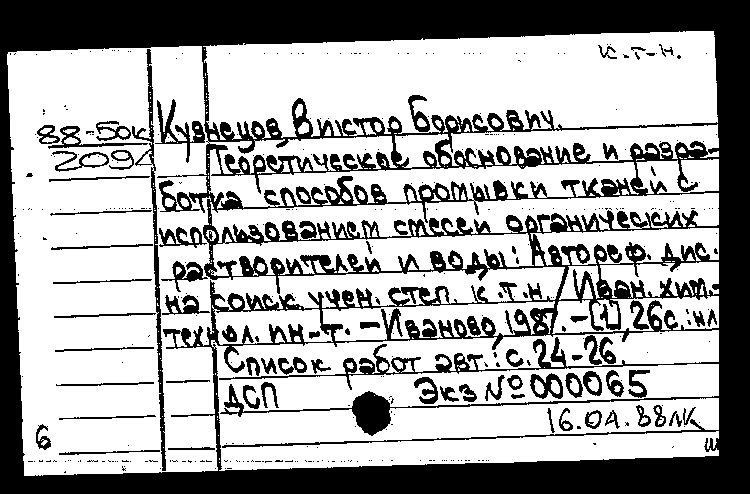 к.т-н.
88-50к Кузнецов, Виктор Борисович.
209 Теоретическое обоснование и разра-
ботка способов промывки тканей с
использованием смесей органических
растворителей и воды: Автореф. дис.
на соиск. учен. степ. к.т.н. / Иван. хим.-
технол. ин-т. - Иваново, 1987. - [1], 26 с. : ил
Список работ авт.: с. 24-26.
ДСП Экз № 000065
16.04.88
6